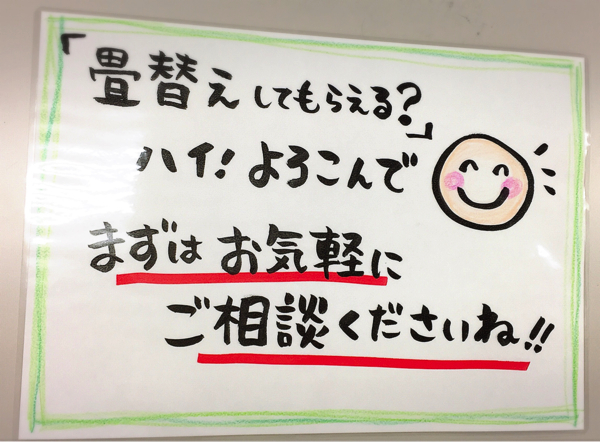 「畳替えしてもらえる?」
ハイ!よろこんで
まずはお気軽に
ご相談くださいね!!